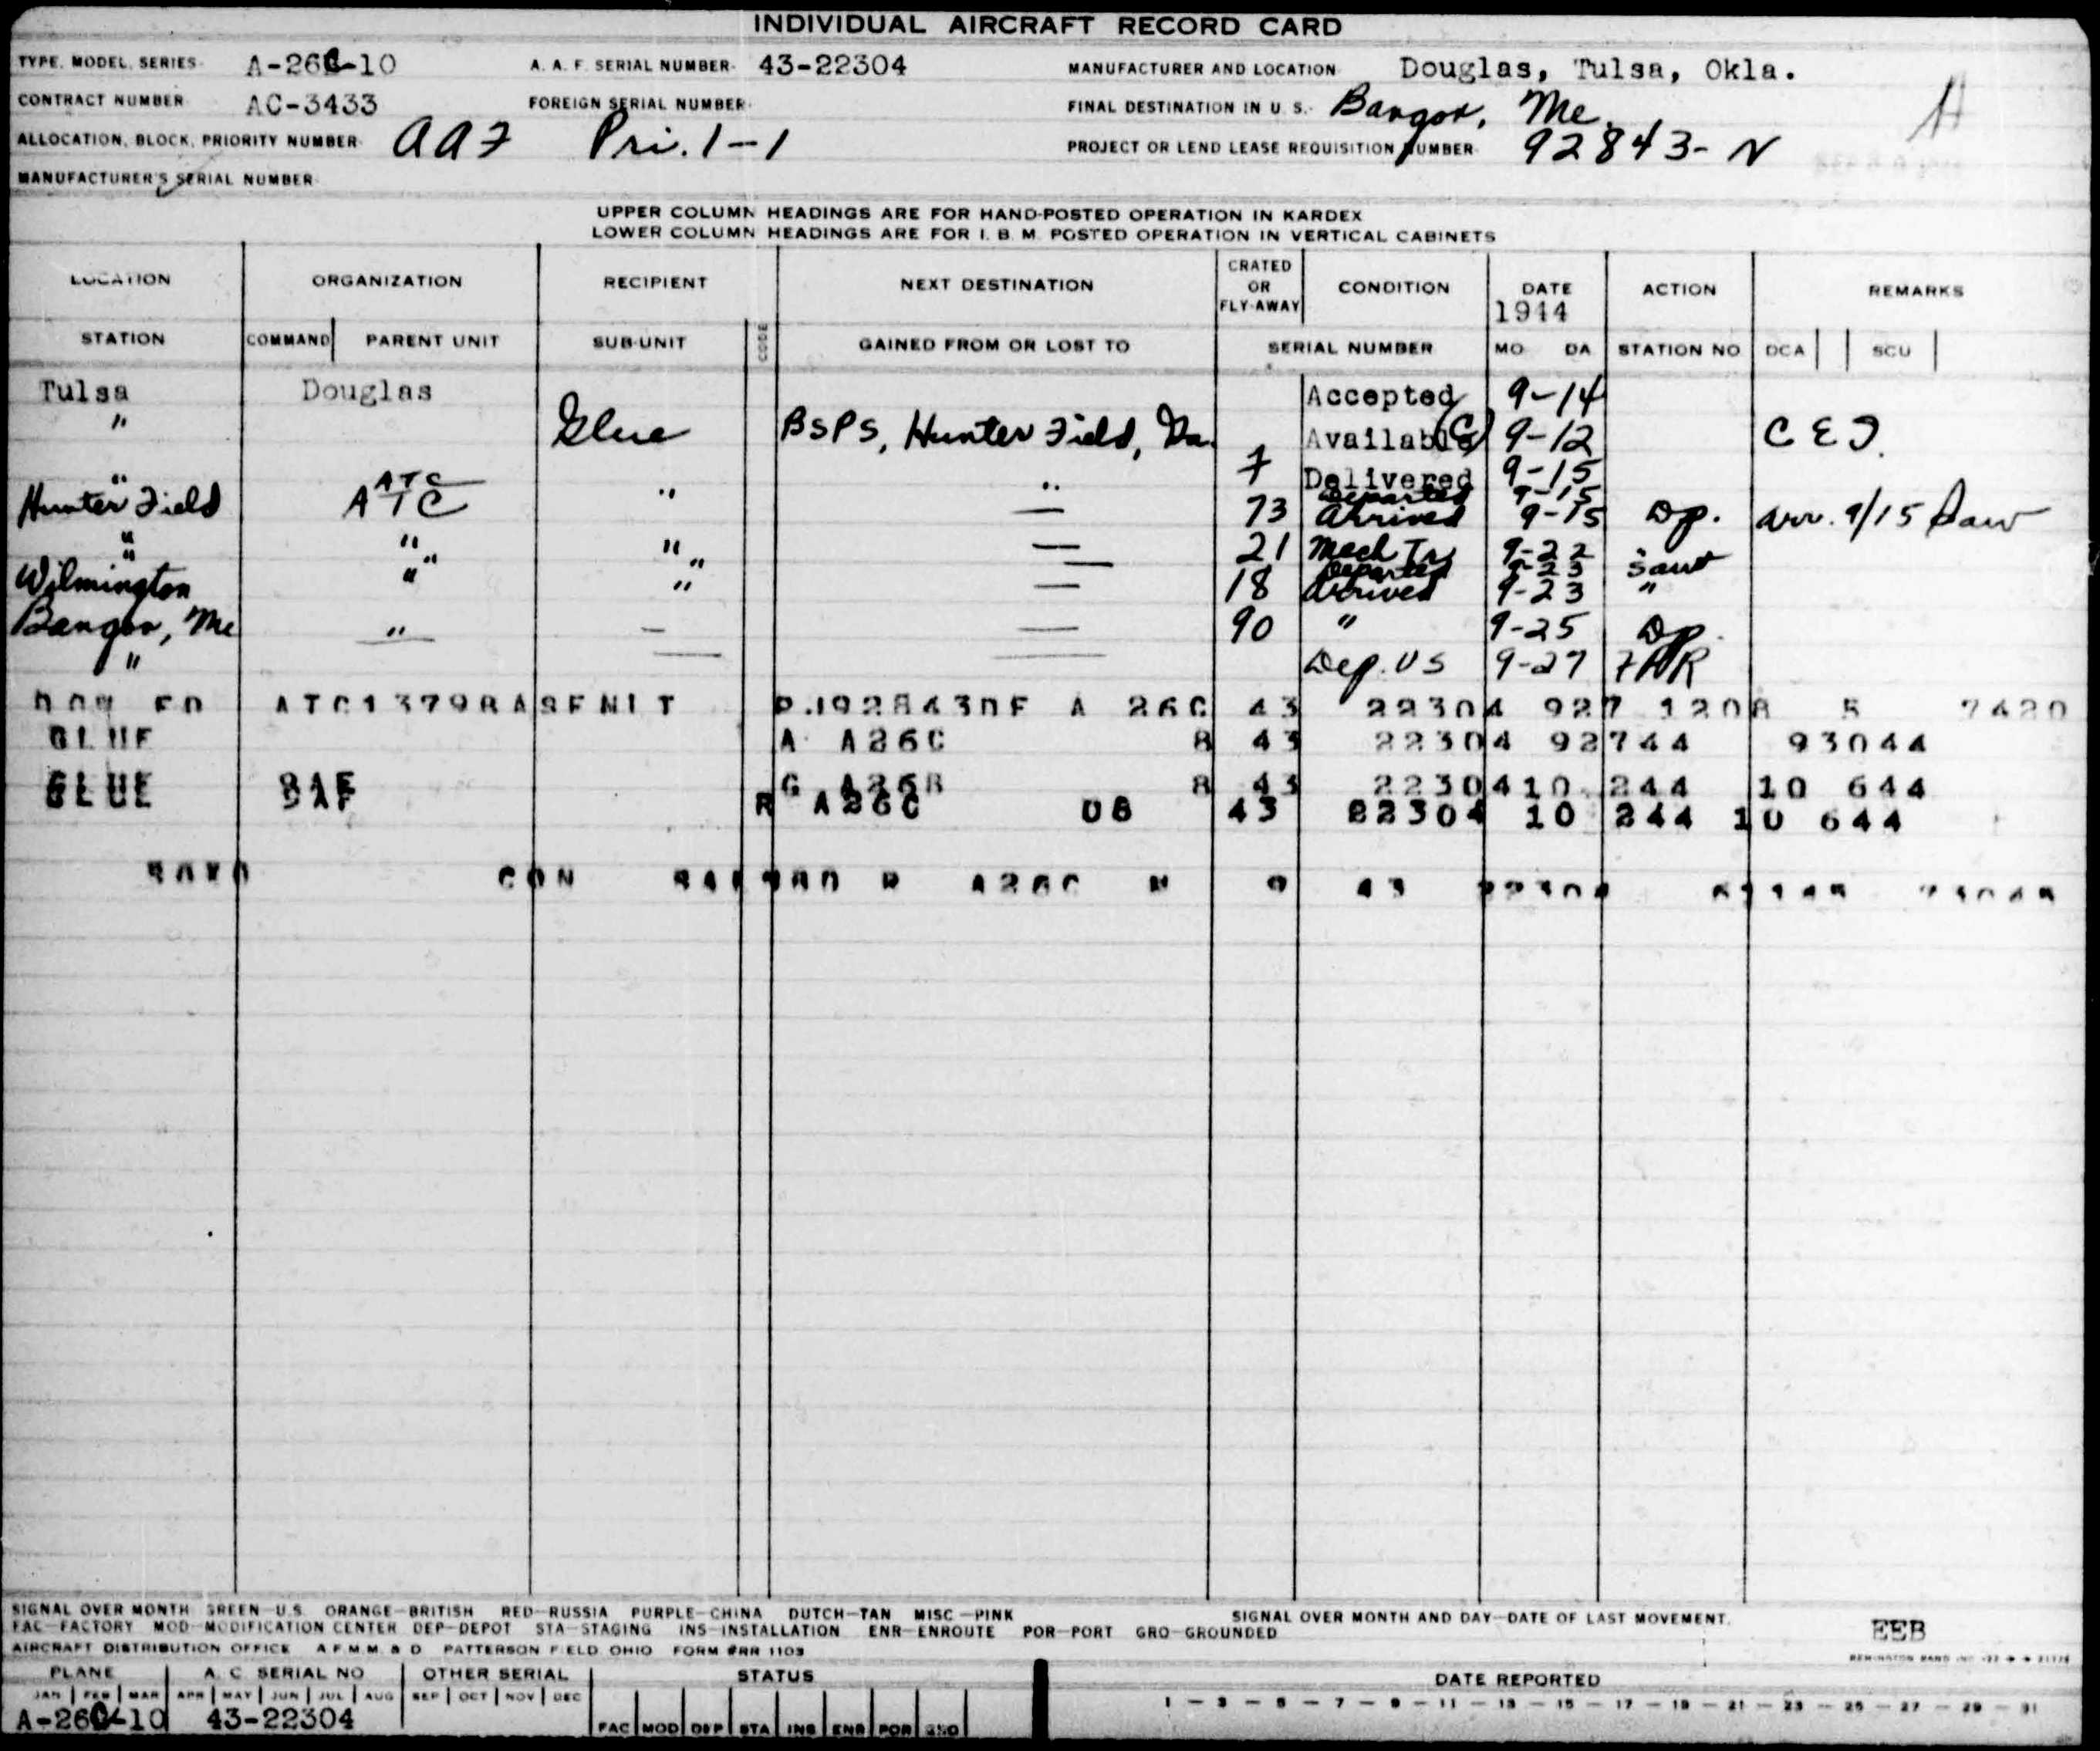 INDIVIDUAL AIRCRAFT RECORD CARD
TYPE, MODEL, SERIES A-26C-10 A. A. F. SERIAL NUMBER 43-22304 MANUFACTURER AND LOCATION Douglas, Tulsa, Okla.
CONTRACT NUMBER AC-3433 FOREIGN SERIAL NUMBER FINAL DESTINATION IN U. S. Bangor, Me.
ALLOCATION, BLOCK, PRIORITY NUMBER AAF Pri. 1-1 PROJECT OR LEND LEASE REQUISITION NUMBER 92843-N
MANUFACTURER'S SERIAL NUMBER
UPPER COLUMN HEADINGS ARE FOR HAND-POSTED OPERATION IN KARDEX
LOWER COLUMN HEADINGS ARE FOR I. B. M. POSTED OPERATION IN VERTICAL CABINETS
LOCATION ORGANIZATION RECIPIENT NEXT DESTINATION CRATED OR FLY-AWAY CONDITION DATE 1944 ACTION REMARKS
STATION COMMAND PARENT UNIT SUB-UNIT CODE GAINED FROM OR LOST TO SERIAL NUMBER MO DA STATION NO DCA SCU
Tulsa Douglas Accepted 9-14
" Glue BSPS, Hunter Field, Ga. Available (C) 9-12 C E I.
" ATC " " 7 Delivered 9-15
Departed 9-15
Hunter Field ATC — 73 Arrived 9-15 Dp. arr. 9/15 Sav
" " " — 21 Mech Tr 9-22 Sav
" " " Departed 9-23
Wilmington " " — 18 Arrived 9-23 "
Bangor, Me " — — 90 " 9-25 Dp.
" — — Dep. US 9-27 FAR
DOW FD ATC1379BASEUNIT PJ92843DE A 26C 43 22304 927 1208 5 7420
GLUE A A26C 8 43 22304 92744 93044
GLUE 8AF G A26B 8 43 2230410 244 10 644
GLUE 9AF R A26C 08 43 22304 10 244 10 644
CON R A26C 9 43 22304
SIGNAL OVER MONTH GREEN—U.S. ORANGE—BRITISH RED—RUSSIA PURPLE—CHINA DUTCH—TAN MISC—PINK SIGNAL OVER MONTH AND DAY—DATE OF LAST MOVEMENT.
FAC—FACTORY MOD—MODIFICATION CENTER DEP—DEPOT STA—STAGING INS—INSTALLATION ENR—ENROUTE POR—PORT GRO—GROUNDED EEB
AIRCRAFT DISTRIBUTION OFFICE A F. M. M. & D PATTERSON FIELD OHIO FORM #RR 1103
PLANE A. C. SERIAL NO OTHER SERIAL STATUS DATE REPORTED
JAN FEB MAR APR MAY JUN JUL AUG SEP OCT NOV DEC 1 — 3 — 5 — 7 — 9 — 11 — 13 — 15 — 17 — 19 — 21 — 23 — 25 — 27 — 29 — 31
A-26C-10 43-22304 FAC MOD DEP STA INS ENR POR GRO